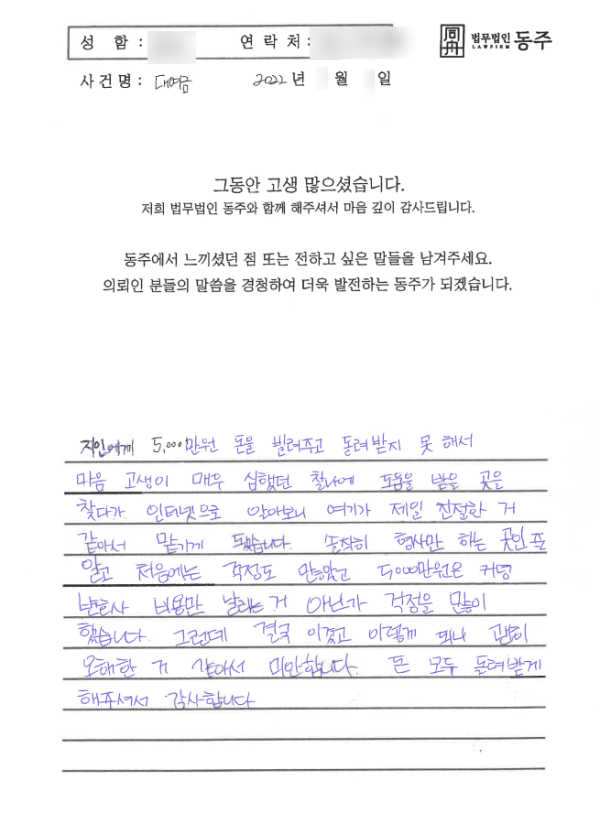 성 함 : 연 락 처 :
同舟 법무법인 동주
LAWFIRM
사 건 명 : 대여금 2022 년 월 일
그동안 고생 많으셨습니다.
저희 법무법인 동주와 함께 해주셔서 마음 깊이 감사드립니다.
동주에서 느끼셨던 점 또는 전하고 싶은 말들을 남겨주세요.
의뢰인 분들의 말씀을 경청하여 더욱 발전하는 동주가 되겠습니다.
지인에게 5,000만원 돈을 빌려주고 돌려받지 못 해서
마음 고생이 매우 심했던 찰나에 도움을 받을 곳을
찾다가 인터넷으로 알아보니 여기가 제일 친절한 거
같아서 맡기게 됐습니다. 솔직히 형사만 하는 곳인 줄
알고 처음에는 걱정도 많았고 5,000만원은 커녕
변호사 비용만 날리는 거 아닌가 걱정을 많이
했습니다. 그런데 결국 이겼고 이렇게 되니 괜히
오해한 거 같아서 미안합니다. 돈 모두 돌려받게
해주셔서 감사합니다